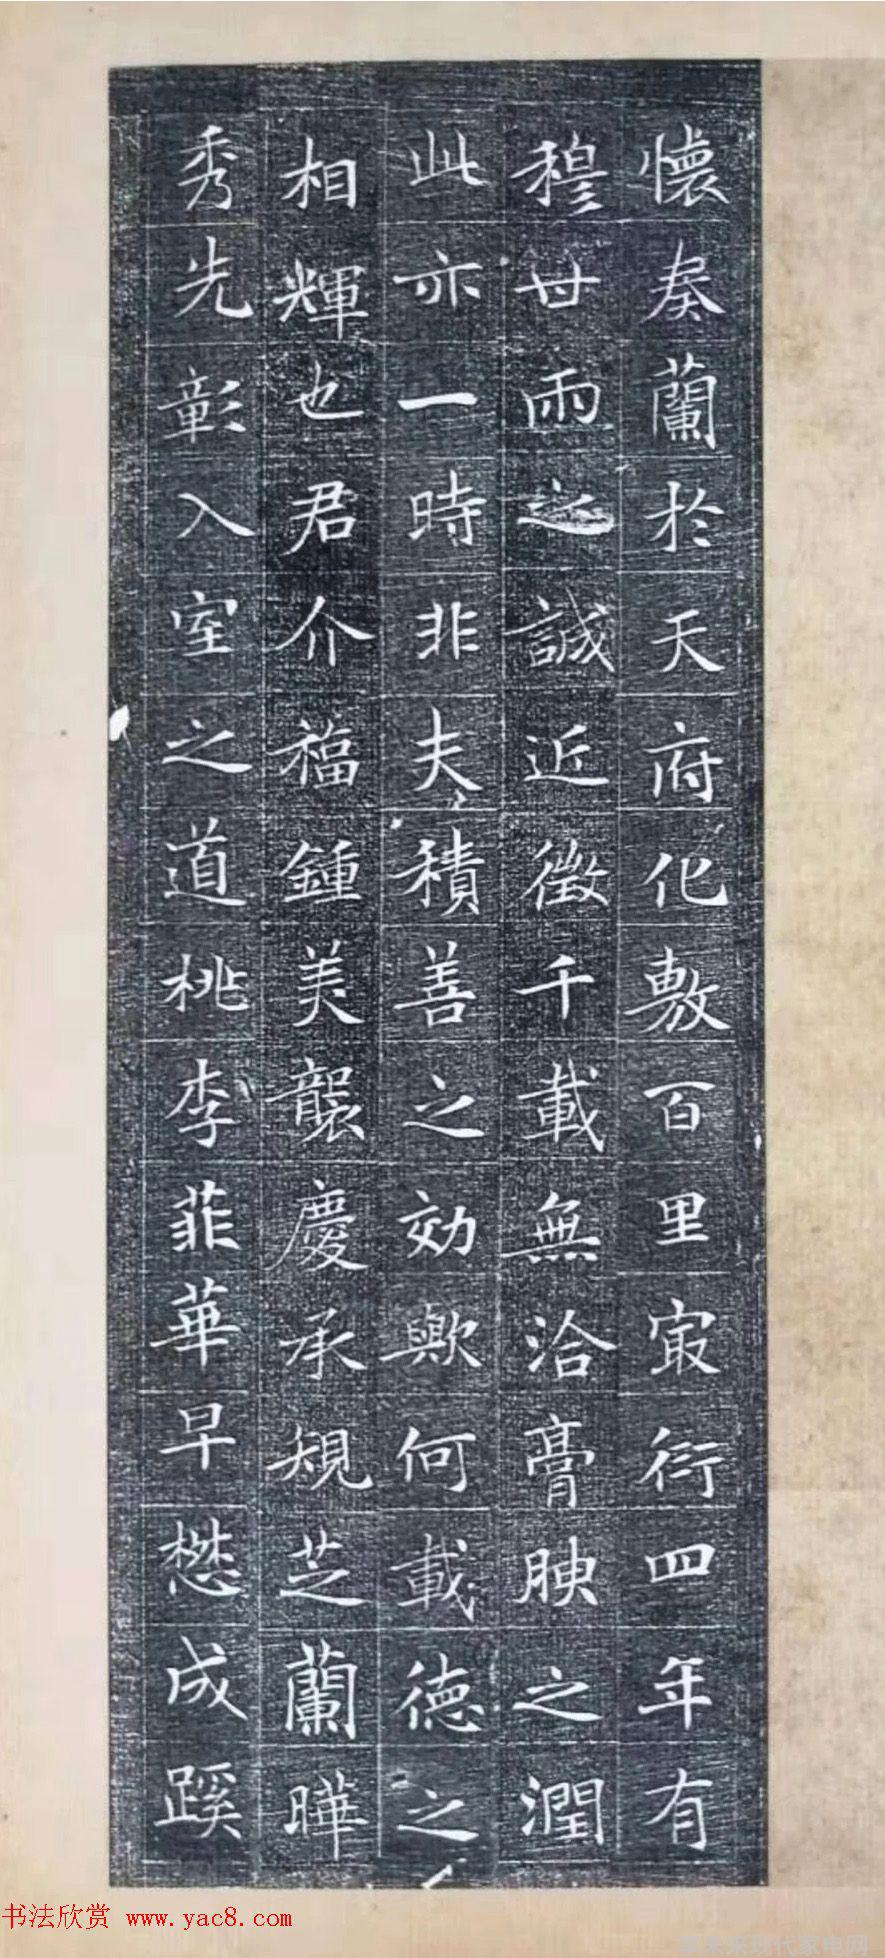 懷奏蘭於天府化敷百里寂衍四年有
穆世雨之誠近徵千載無洽膏腴之潤
此亦一時非夫積善之効歟何載德之
相輝也君介福鍾美襲慶承規芝蘭曄
秀先彰入室之道桃李菲華早懋成蹊
书法欣赏 www.yac8.com